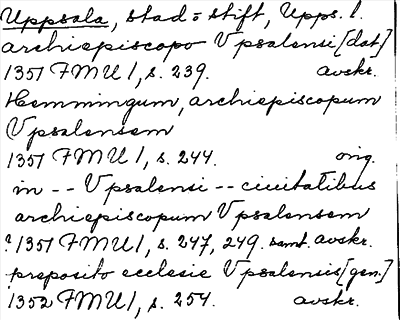 Uppsala, stad o stift, Upps. l.
archiepiscopo Vpsalensi [dat]
1351 FMU 1, s. 239. avskr.
Hemmingum, archiepiscopum
Vpsalensem
1351 FMU 1, s. 244. orig.
in -- Vpsalensi -- ciuitatibus
archiepiscopum Vpsalensem
?1351 FMU 1, s. 247, 249. samt. avskr.
preposito ecclesie Vpsalensis [gen.]
1352 FMU 1, s. 254. avskr.